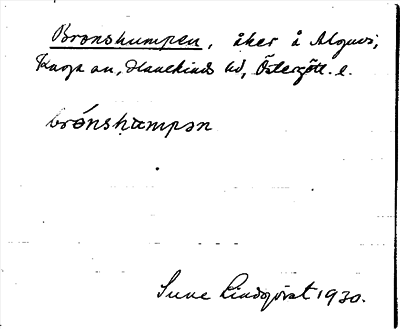 Brønshumpen, åker å Algus,
Kaga sn, Hanekinds hd, Östergötl. l.
brónshumpən
Sune Lindqvist 1930.